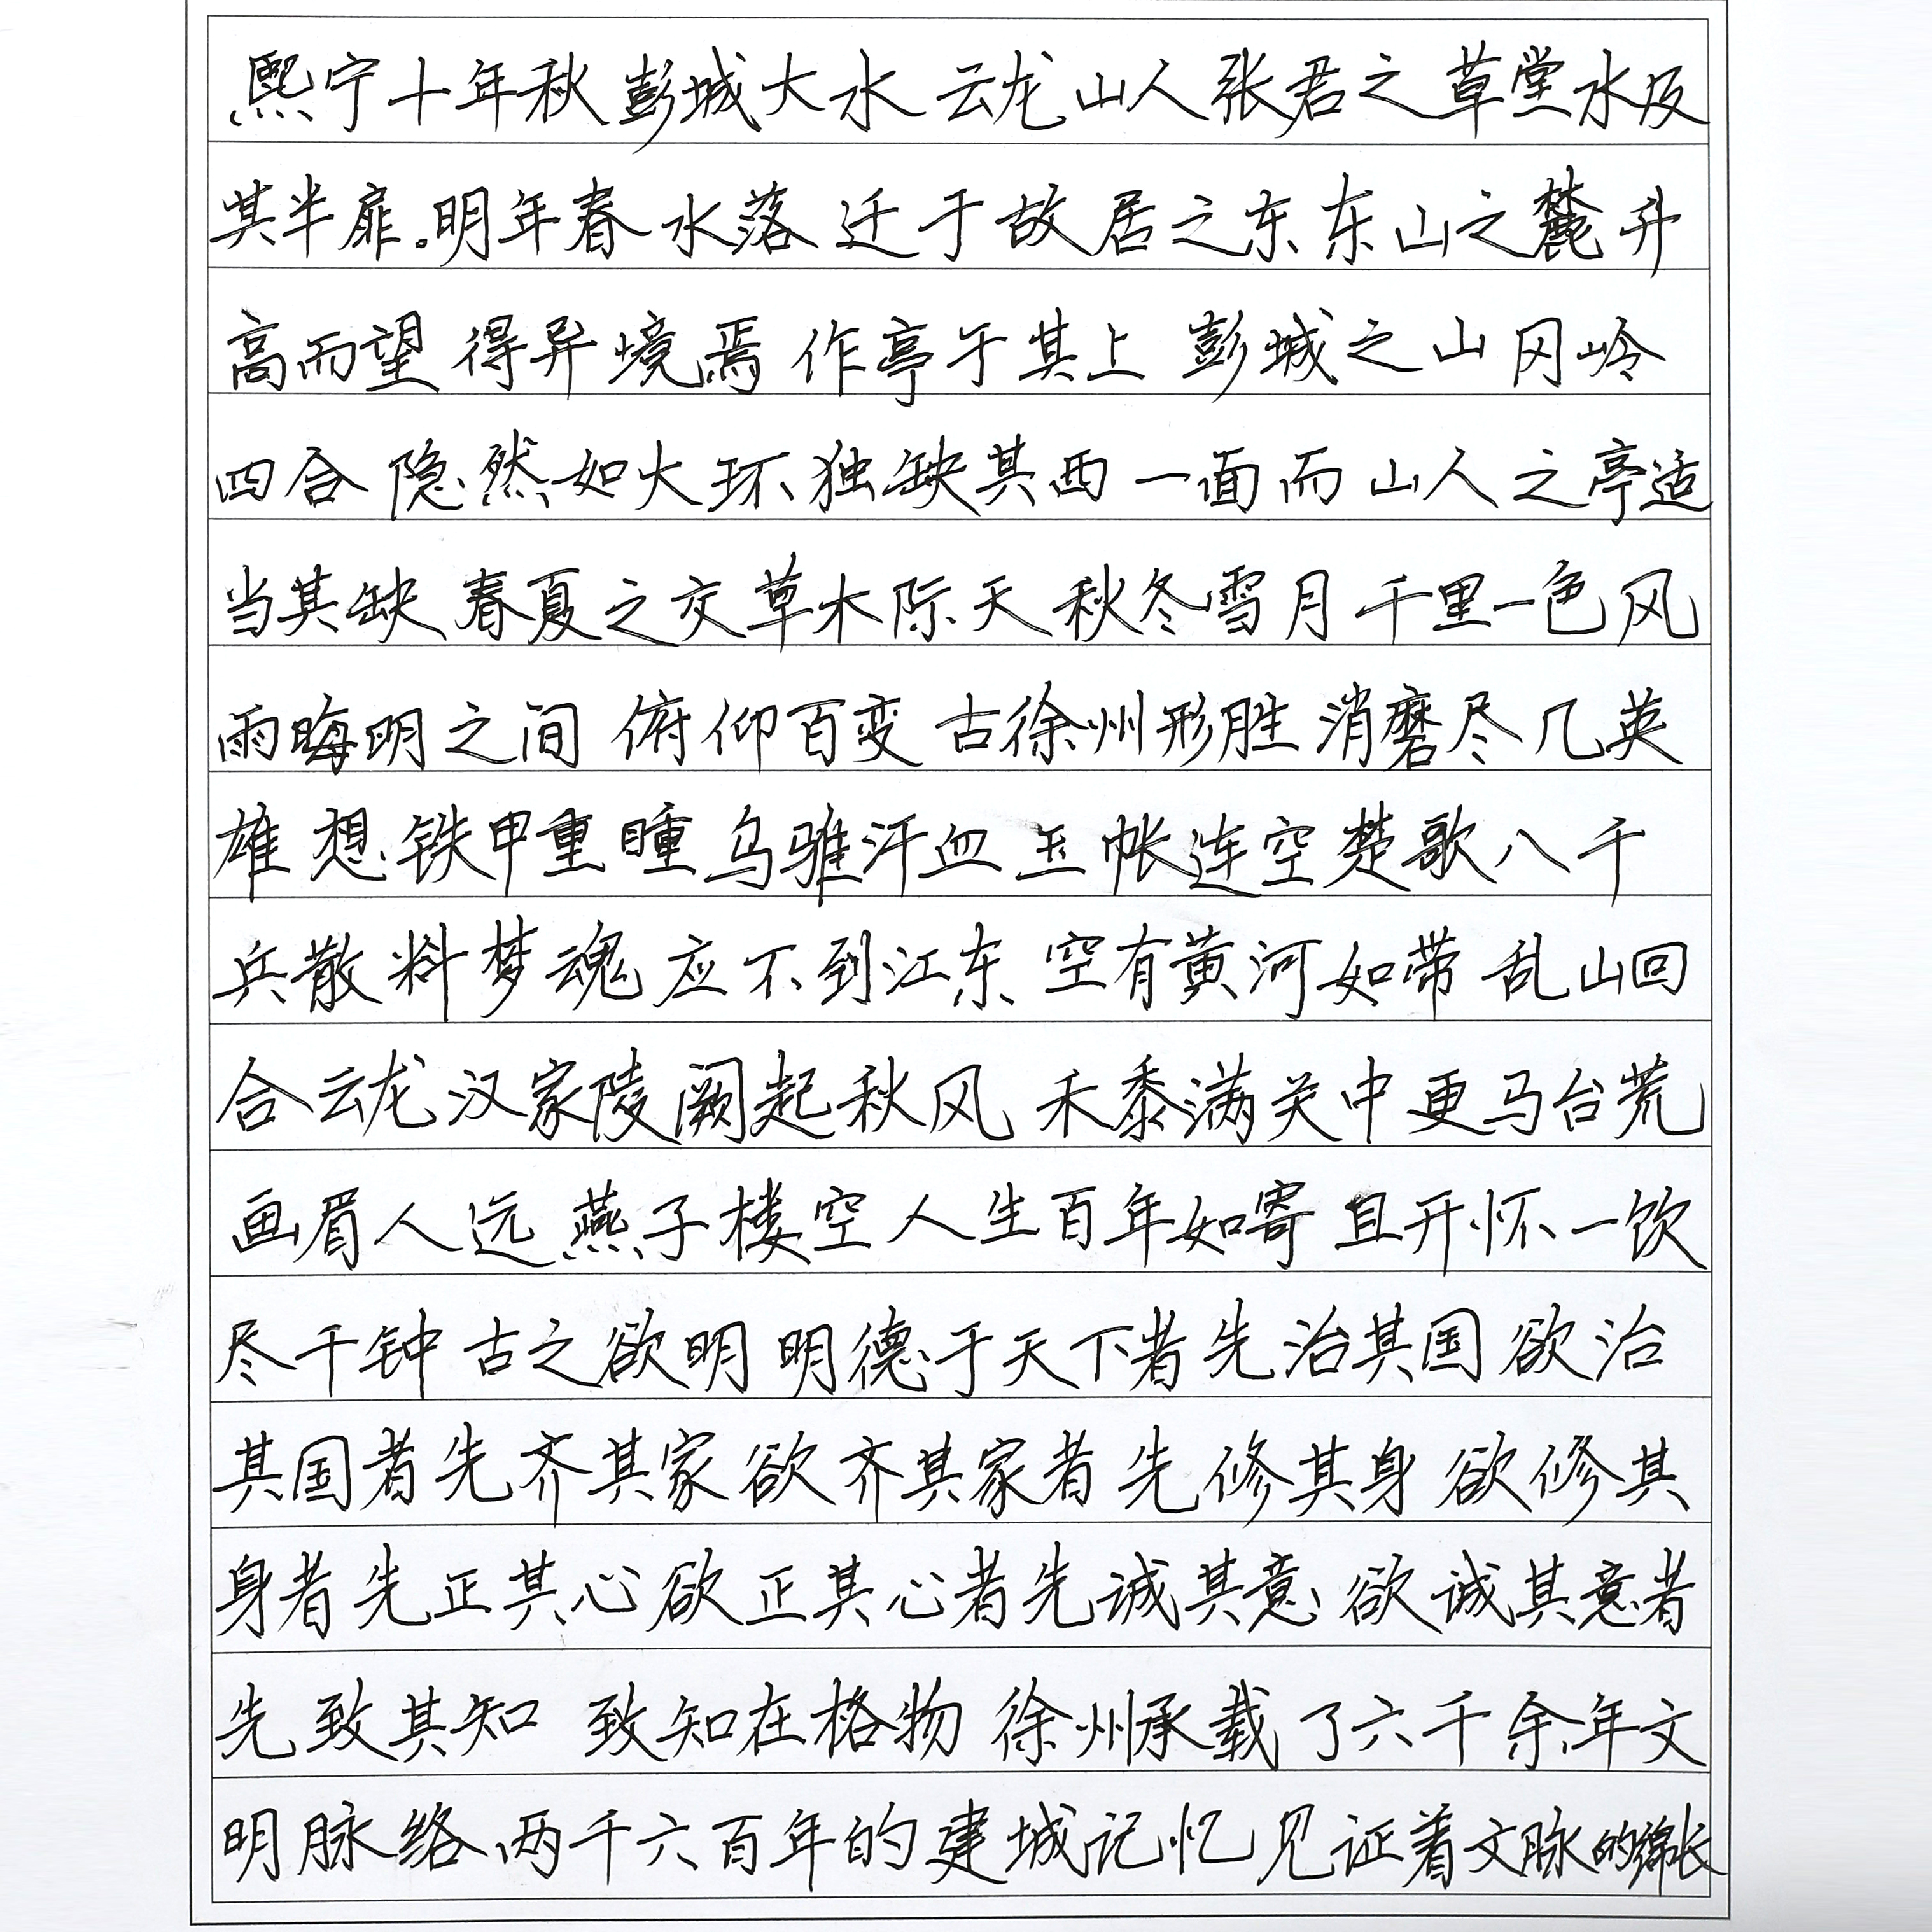 熙宁十年秋彭城大水云龙山人张君之草堂水及
其半扉。明年春水落迁于故居之东东山之麓升
高而望得异境焉作亭于其上彭城之山冈岭
四合隐然如大环独缺其西一面而山人之亭适
当其缺春夏之交草木际天秋冬雪月千里一色风
雨晦明之间俯仰百变古徐州形胜消磨尽几英
雄想铁甲重瞳乌骓汗血玉帐连空楚歌八千
兵散料梦魂应不到江东空有黄河如带乱山回
合云龙汉家陵阙起秋风禾黍满关中更马台荒
画眉人远燕子楼空人生百年如寄且开怀一饮
尽千钟古之欲明明德于天下者先治其国欲治
其国者先齐其家欲齐其家者先修其身欲修其
身者先正其心欲正其心者先诚其意欲诚其意者
先致其知致知在格物徐州承载了六千余年文
明脉络两千六百年的建城记忆见证着文脉的绵长